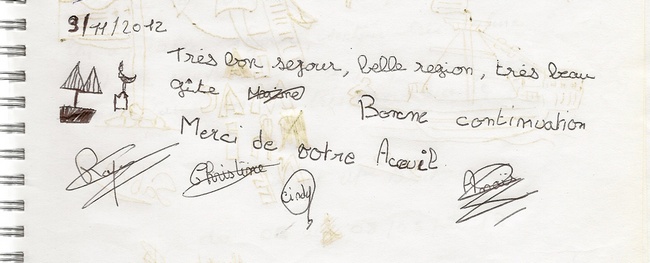 3/11/2012
Très bon sejour, belle region, très beau
gîte
Bonne continuation
Merci de votre Acceuil.
Christine
Cindy
Anaïs